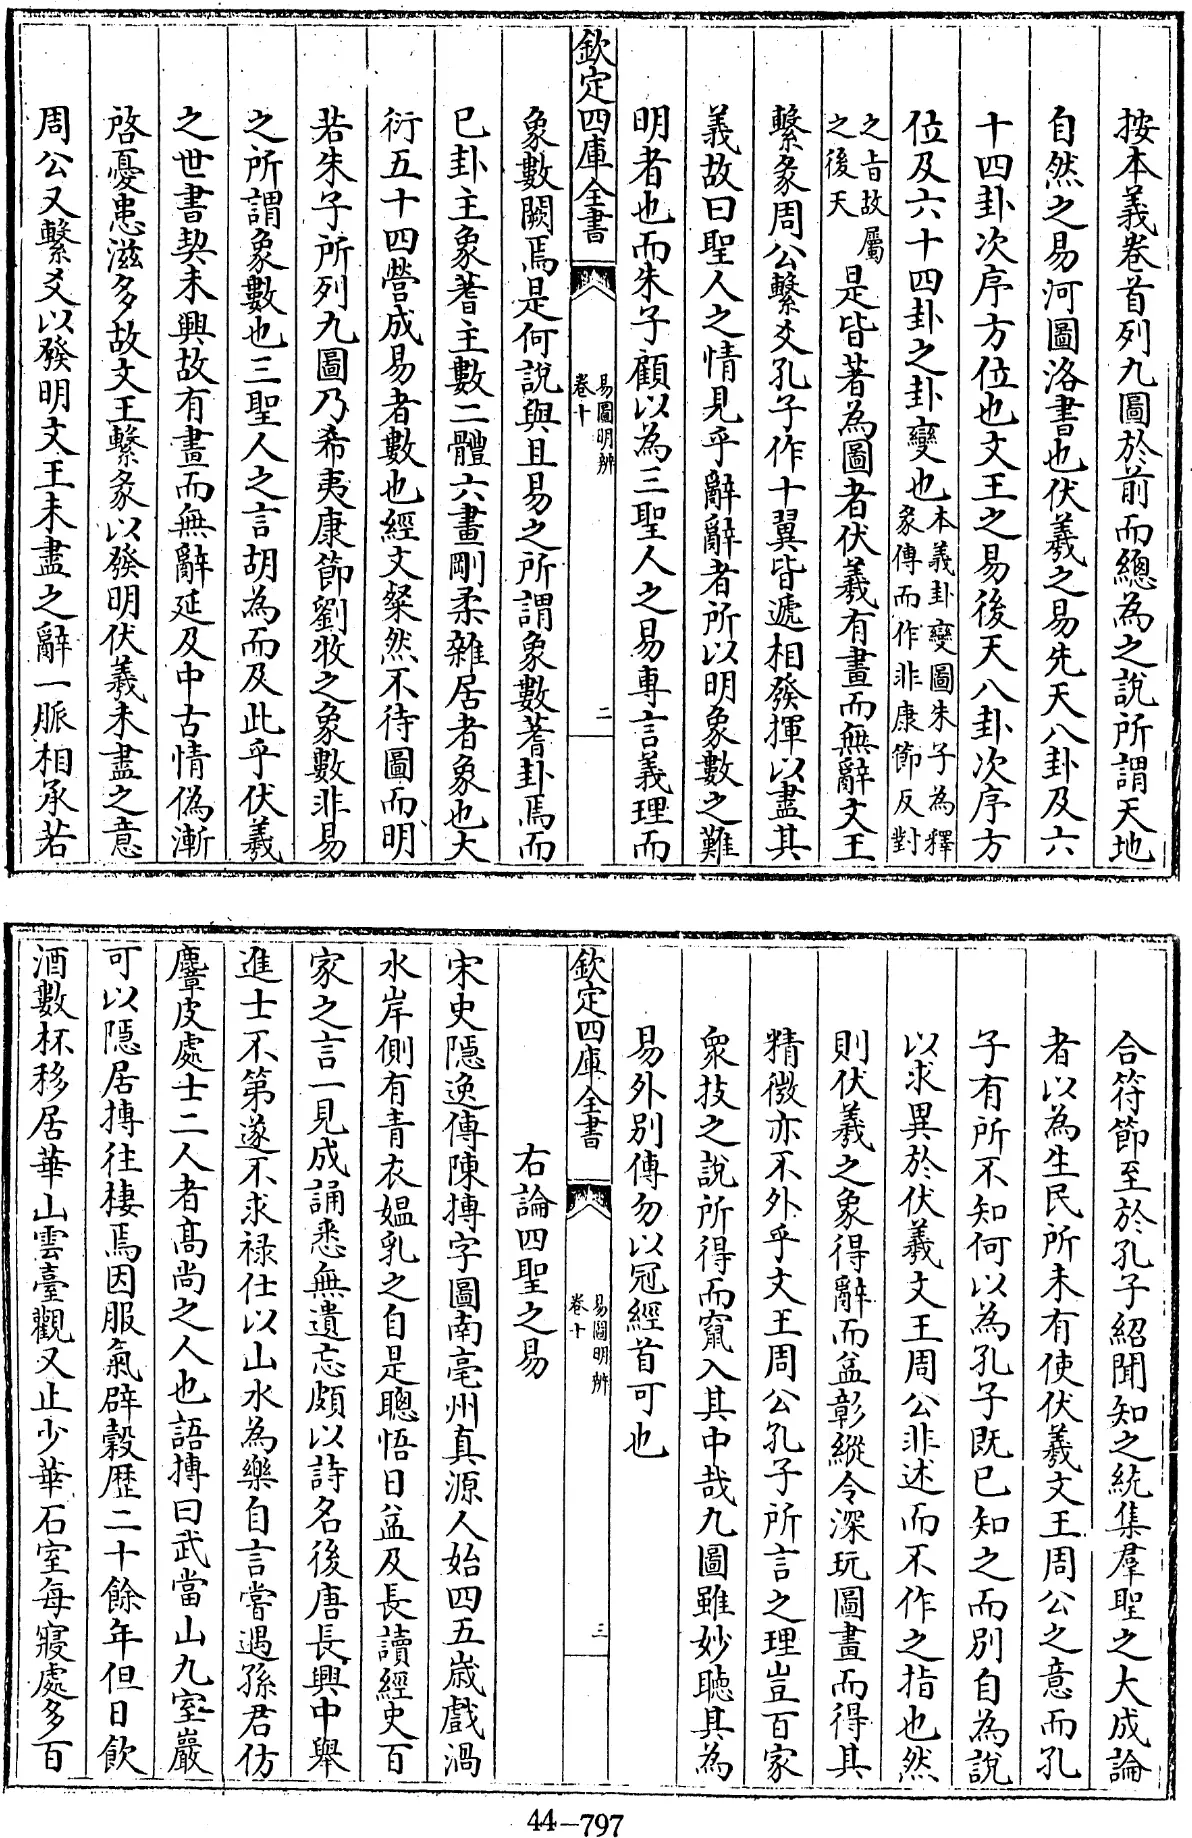 按本義卷首列九圖於前而總為之說所謂天地
自然之易河圖洛書也伏羲之易先天八卦及六
十四卦次序方位也文王之易後天八卦次序方
位及六十四卦之卦變也本義卦變圖朱子為釋
彖傳而作非康節反對
之旨故屬
之後天
是皆著為圖者伏羲有畫而無辭文王
繫彖周公繫爻孔子作十翼皆遞相發揮以盡其
義故曰聖人之情見乎辭辭者所以明象數之難
明者也而朱子顧以為三聖人之易專言義理而
欽定四庫全書
易圖明辨
卷十
二
象數闕焉是何說與且易之所謂象數蓍卦焉而
已卦主象蓍主數二體六畫剛柔雜居者象也大
衍五十四營成易者數也經文粲然不待圖而明
若朱子所列九圖乃希夷康節劉牧之象數非易
之所謂象數也三聖人之言胡為而及此乎伏羲
之世書契未興故有畫而無辭延及中古情偽漸
啓憂患滋多故文王繫彖以發明伏羲未盡之意
周公又繫爻以發明文王未盡之辭一脈相承若
合符節至於孔子紹聞知之統集羣聖之大成論
者以為生民所未有使伏羲文王周公之意而孔
子有所不知何以為孔子既已知之而別自為說
以求異於伏羲文王周公非述而不作之指也然
則伏羲之象得辭而益彰縱令深玩圖畫而得其
精微亦不外乎文王周公孔子所言之理豈百家
衆技之說所得而竄入其中哉九圖雖妙聽其為
易外別傳勿以冠經首可也
欽定四庫全書
易圖明辨
卷十
三
右論四聖之易
宋史隱逸傳陳摶字圖南亳州真源人始四五嵗戲渦
水岸側有青衣媼乳之自是聰悟日益及長讀經史百
家之言一見成誦悉無遺忘頗以詩名後唐長興中舉
進士不第遂不求祿仕以山水為樂自言嘗遇孫君仿
麞皮處士二人者高尚之人也語摶曰武當山九室巖
可以隱居摶往棲焉因服氣辟穀歷二十餘年但日飲
酒數杯移居華山雲臺觀又止少華石室每寢處多百
44-797